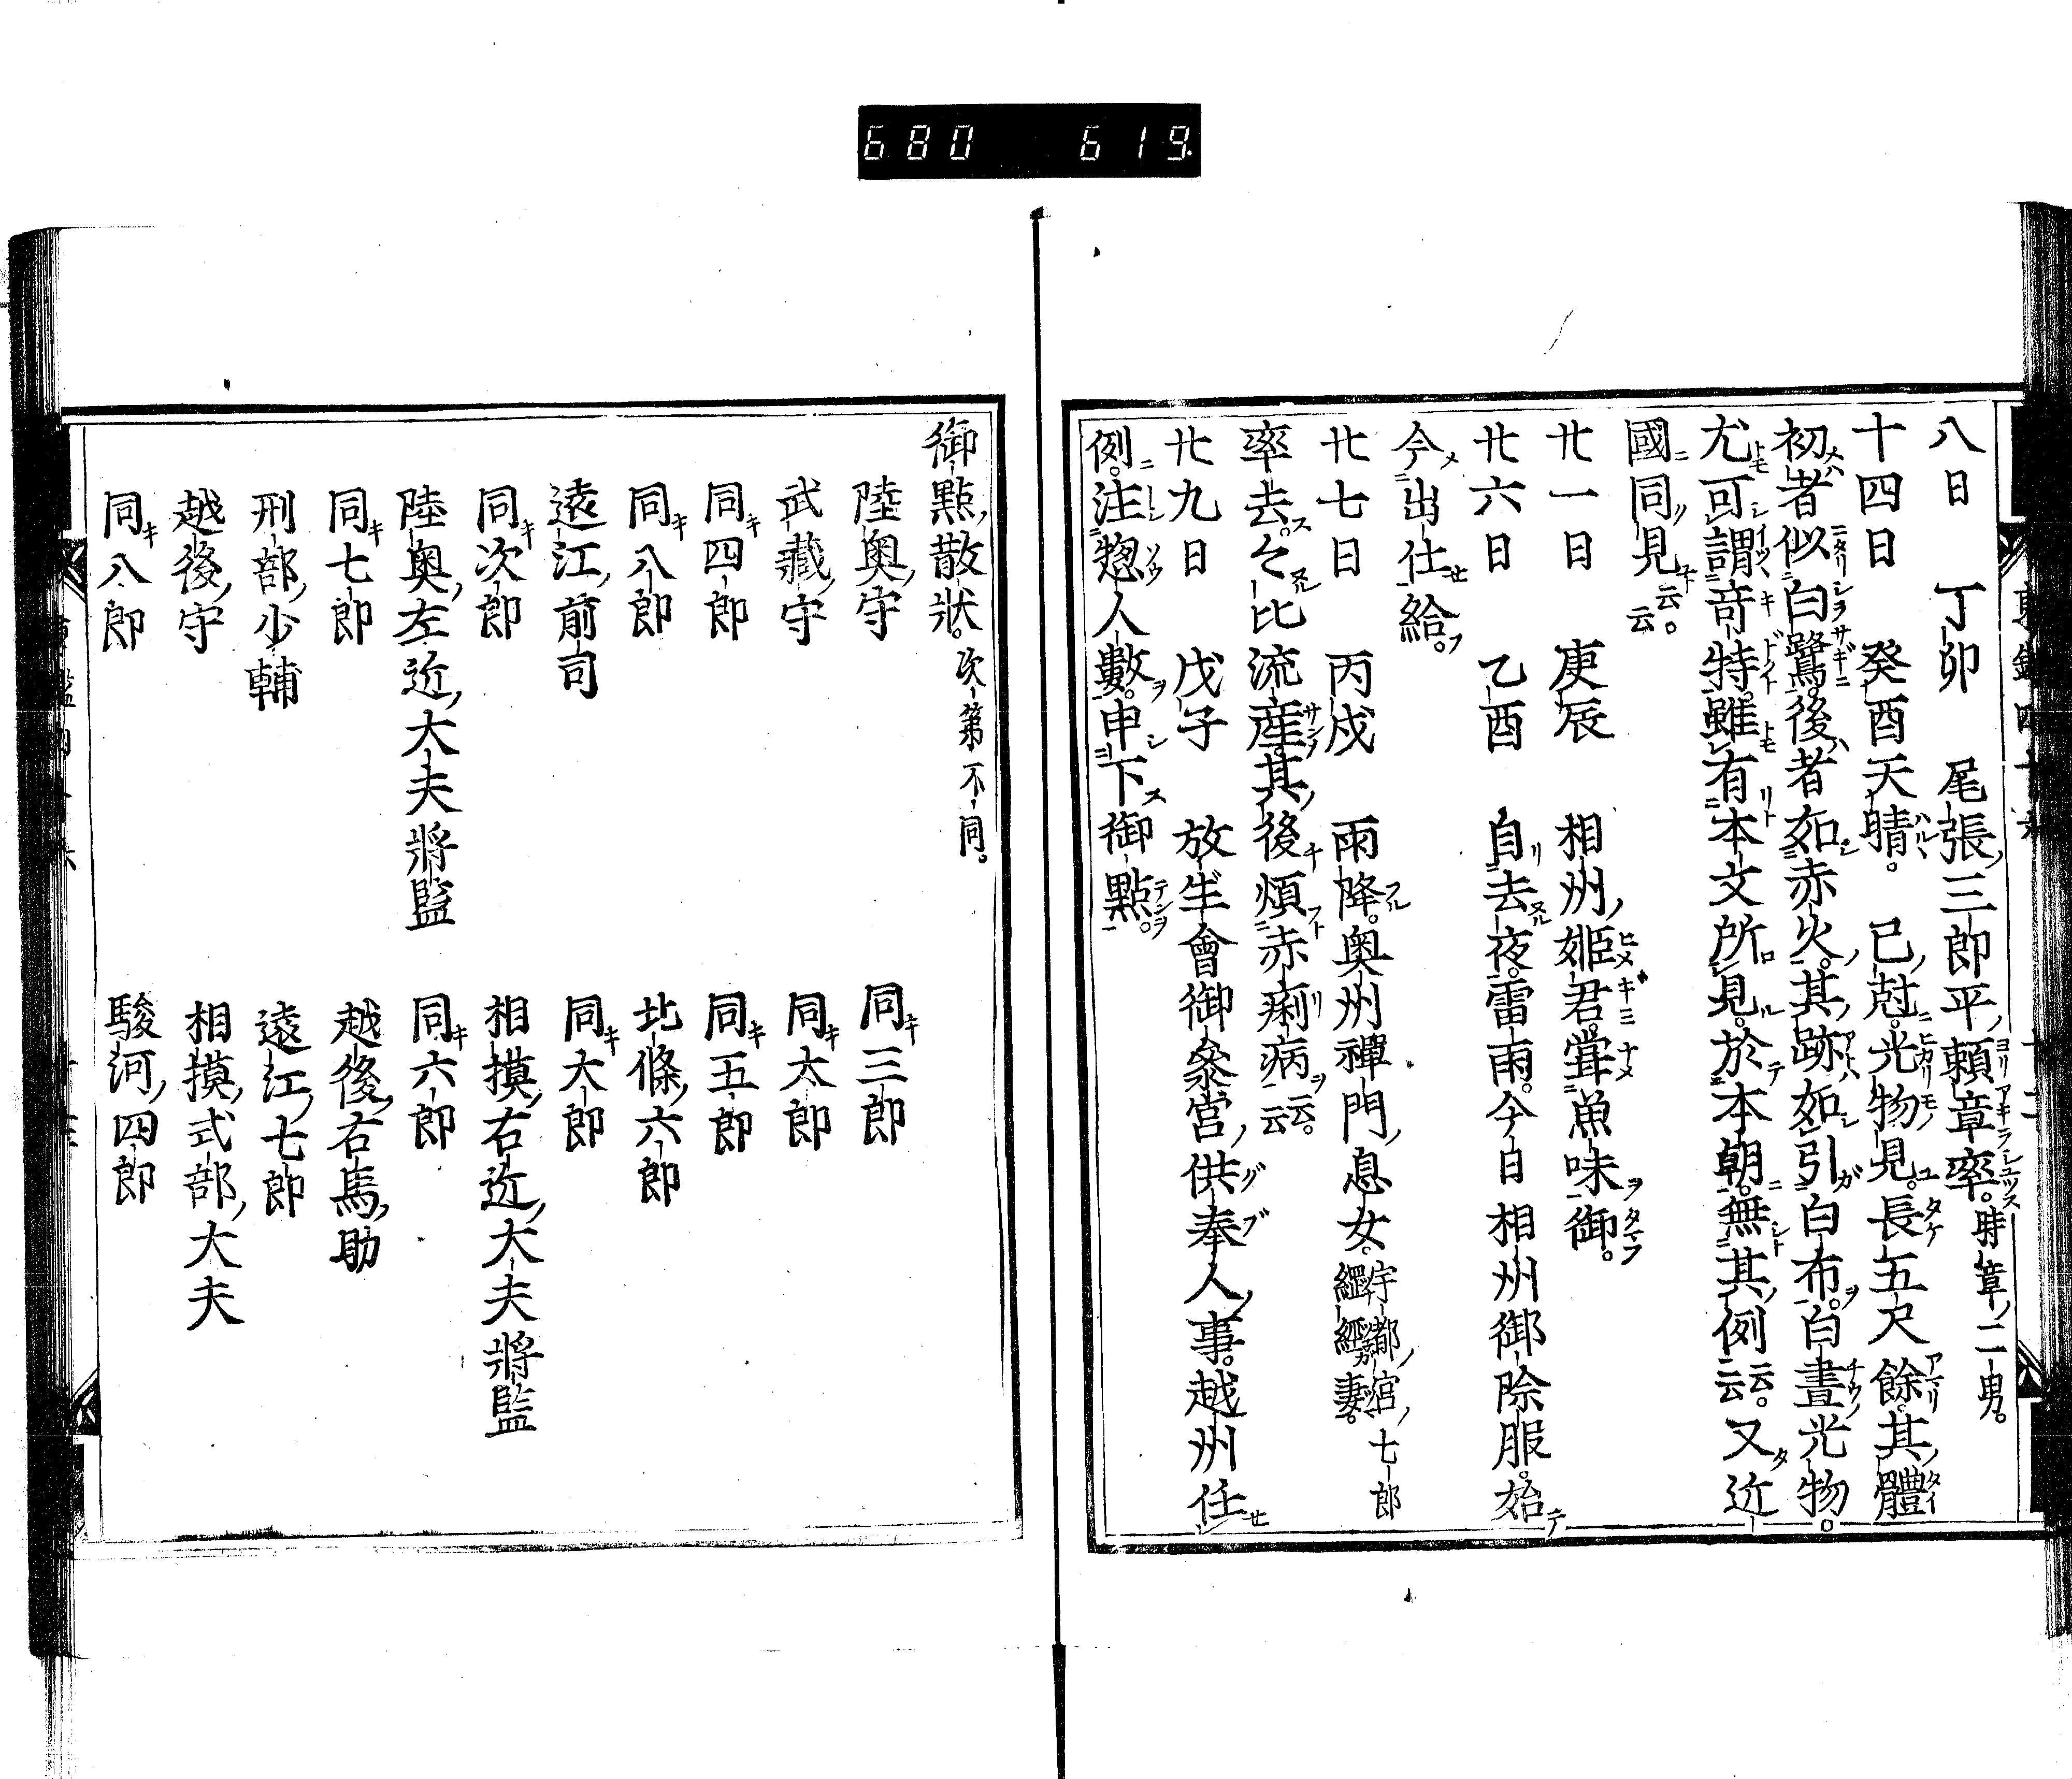 680 619
八日 丁卯 尾張三郎平頼章卒。時章二男。
十四日 癸酉天晴。 巳尅。光物見。長五尺餘。其體
初者似白鷺。後者如赤火。其跡如引白布。白晝光物。
尤可謂奇特。雖有本文所見。於本朝。無其例云云。又近
國同見云云。
廿一日 庚辰 相州姫君嘗魚味御。
廿六日 乙酉 自去夜。雷雨。今日相州御除服。始
今出仕給。
廿七日 丙戌 雨降。奥州禪門息女。宇都宮七郎經綱妻。
卒去。去比流産。其後煩赤痢病云云。
廿九日 戊子 放生會御參宮供奉人事。越州任
例。注惣人數。申下御點。
御點散狀。次第不同。
陸奥守 同三郎
武藏守 同太郎
同四郎 同五郎
同八郎 北條六郎
遠江前司 同太郎
同次郎 相摸右近大夫將監
陸奥左近大夫將監 同六郎
同七郎 越後右馬助
刑部少輔 遠江七郎
越後守 相摸式部大夫
同八郎 駿河四郎